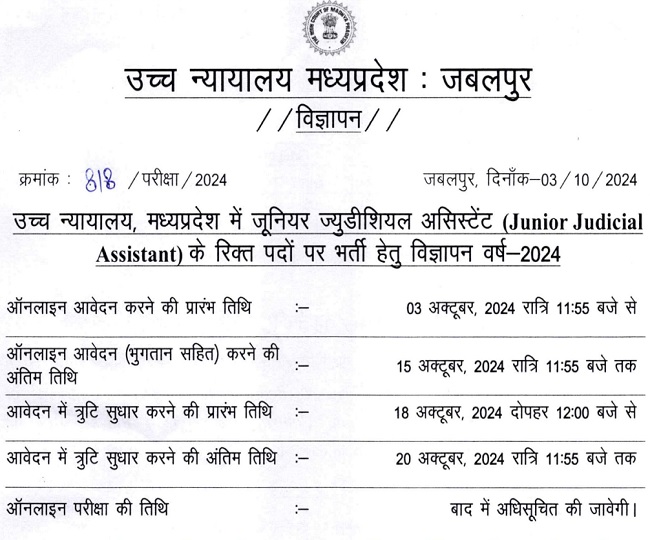 THE HIGH COURT OF MADHYA PRADESH
उच्च न्यायालय मध्यप्रदेश : जबलपुर
//विज्ञापन//
क्रमांक : 818 /परीक्षा/2024 जबलपुर, दिनाँक–03/10/2024
उच्च न्यायालय, मध्यप्रदेश में जूनियर ज्युडीशियल असिस्टेंट (Junior Judicial
Assistant) के रिक्त पदों पर भर्ती हेतु विज्ञापन वर्ष–2024
ऑनलाइन आवेदन करने की प्रारंभ तिथि :– 03 अक्टूबर, 2024 रात्रि 11:55 बजे से
ऑनलाइन आवेदन (भुगतान सहित) करने की
अंतिम तिथि :– 15 अक्टूबर, 2024 रात्रि 11:55 बजे तक
आवेदन में त्रुटि सुधार करने की प्रारंभ तिथि :– 18 अक्टूबर, 2024 दोपहर 12:00 बजे से
आवेदन में त्रुटि सुधार करने की अंतिम तिथि :– 20 अक्टूबर, 2024 रात्रि 11:55 बजे तक
ऑनलाइन परीक्षा की तिथि :– बाद में अधिसूचित की जावेगी।